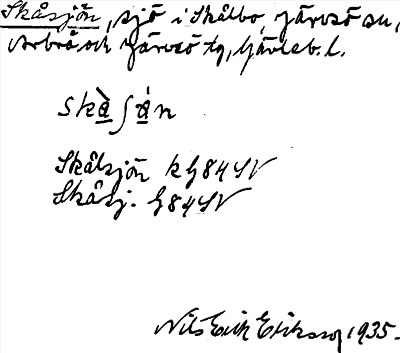 Skåsjön, sjö i Skålbo, Järvsö sn,
Arbrå och Järvsö tg, Gävleb. l.
skå̀ʃǻn
Skålsjön k G84SV
Skåsj. G84SV
Nils Erik Eriksson 1935.